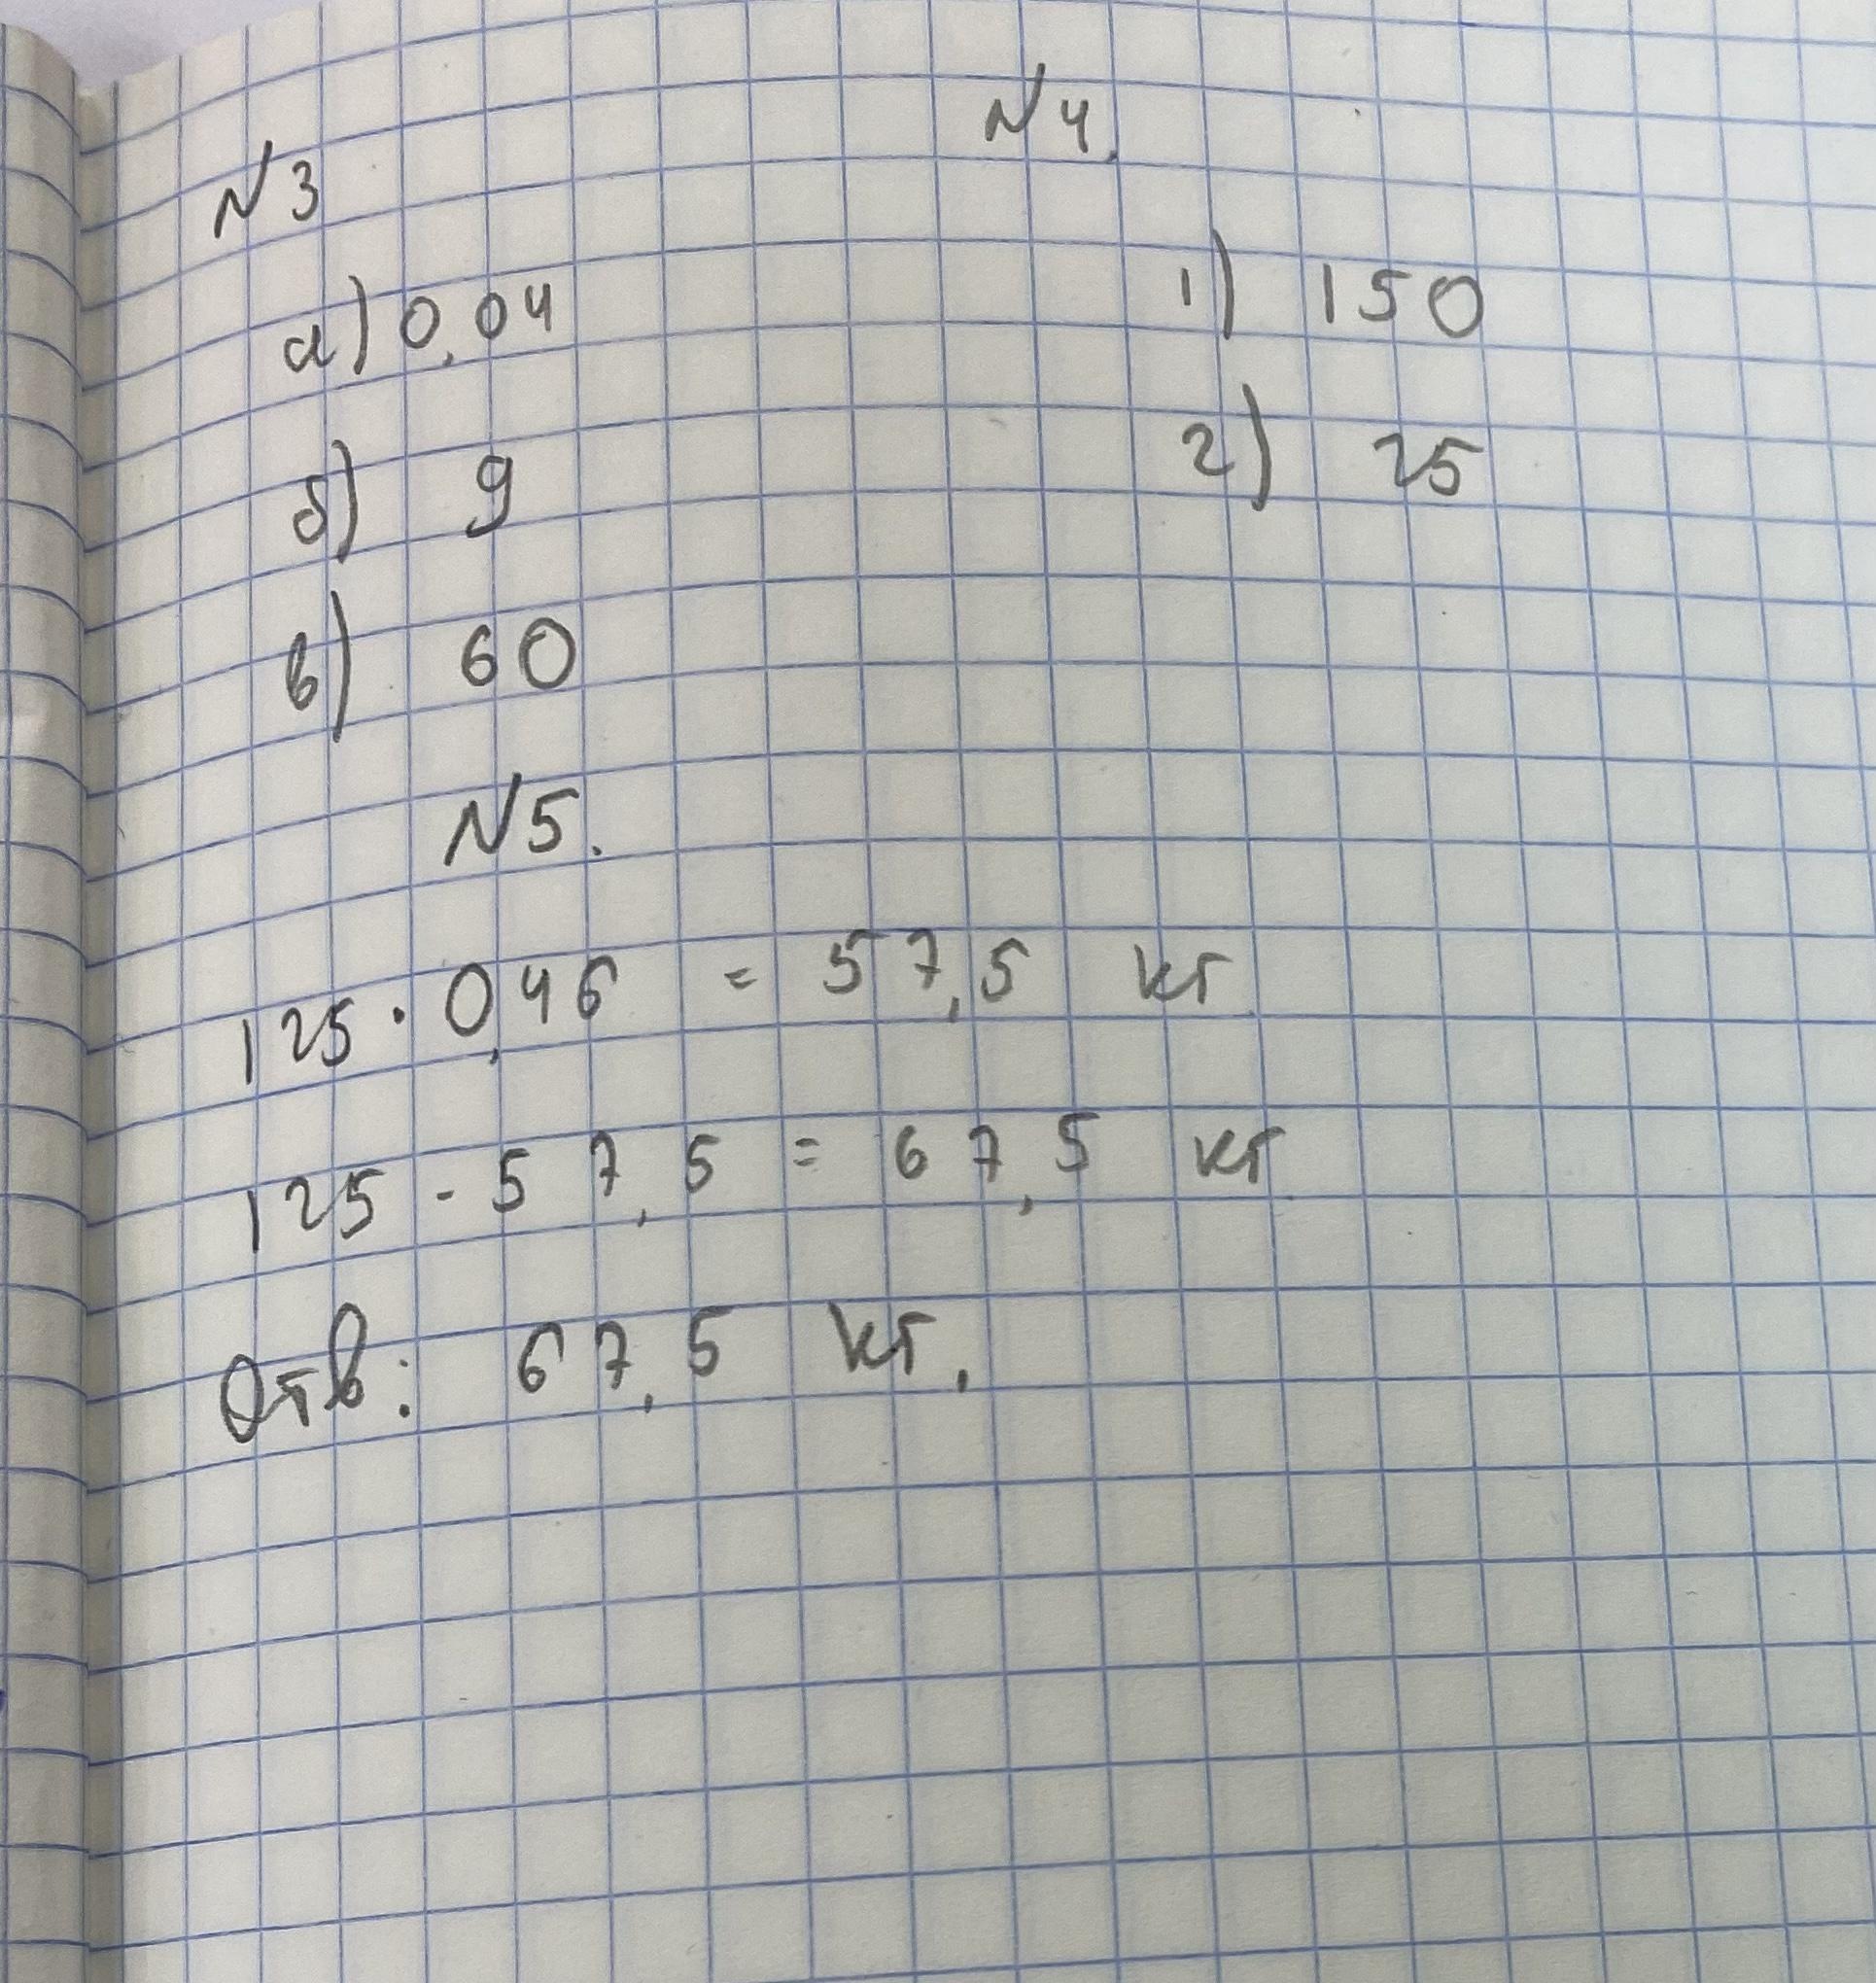 N3
а) 0,04
б) 9
в) 60
N4.
1) 150
2) 25
N5.
125 · 0,46 = 57,5 кг
125 - 57,5 = 67,5 кг
Отв: 67,5 кг.